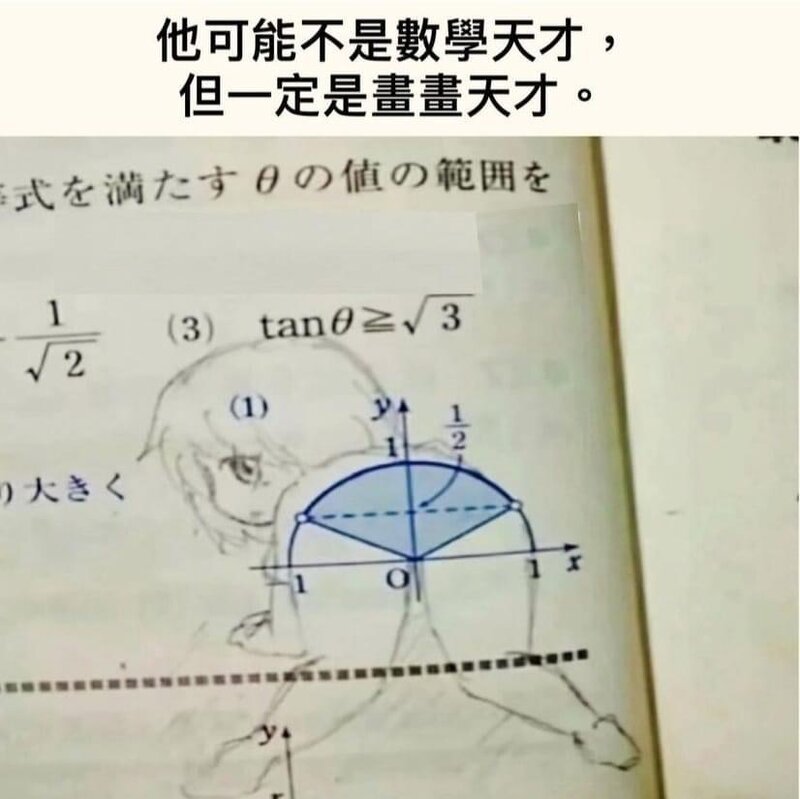 他可能不是數學天才，
但一定是畫畫天才。
式を満たす θ の値の範囲を
1/√2 (3) tanθ≧√3
(1)
y
1
1/2
り大きく
1 O 1 x
y